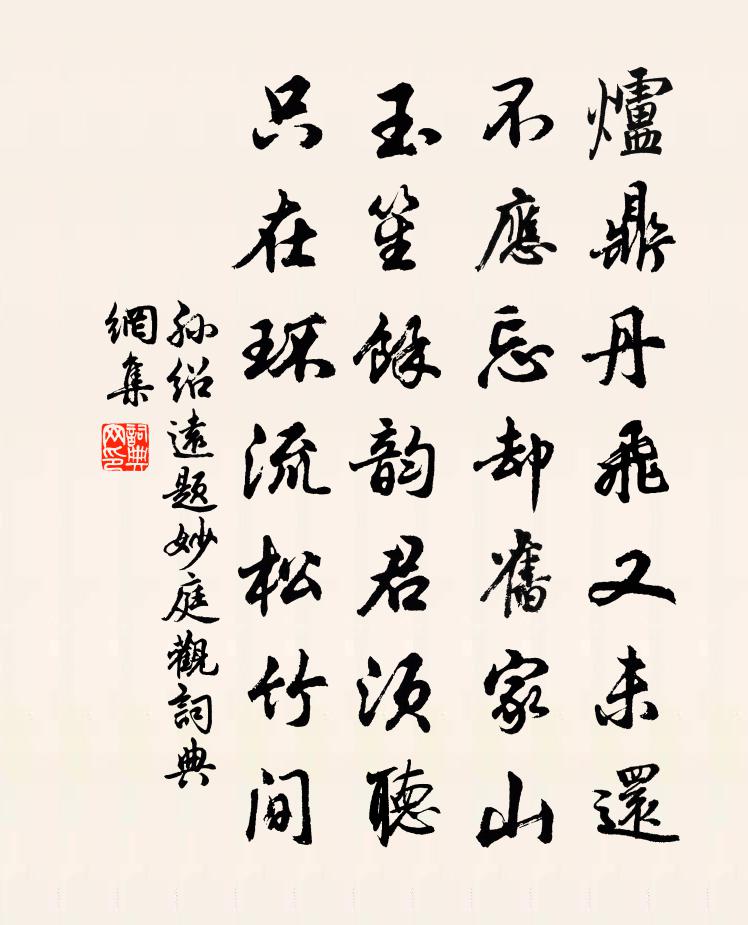 爐鼎丹飛又未還
不應忘却舊家山
玉笙餘韵君須聽
只在環流松竹間
孙紹遠題妙庭觀詞典
網集
詞典
网印